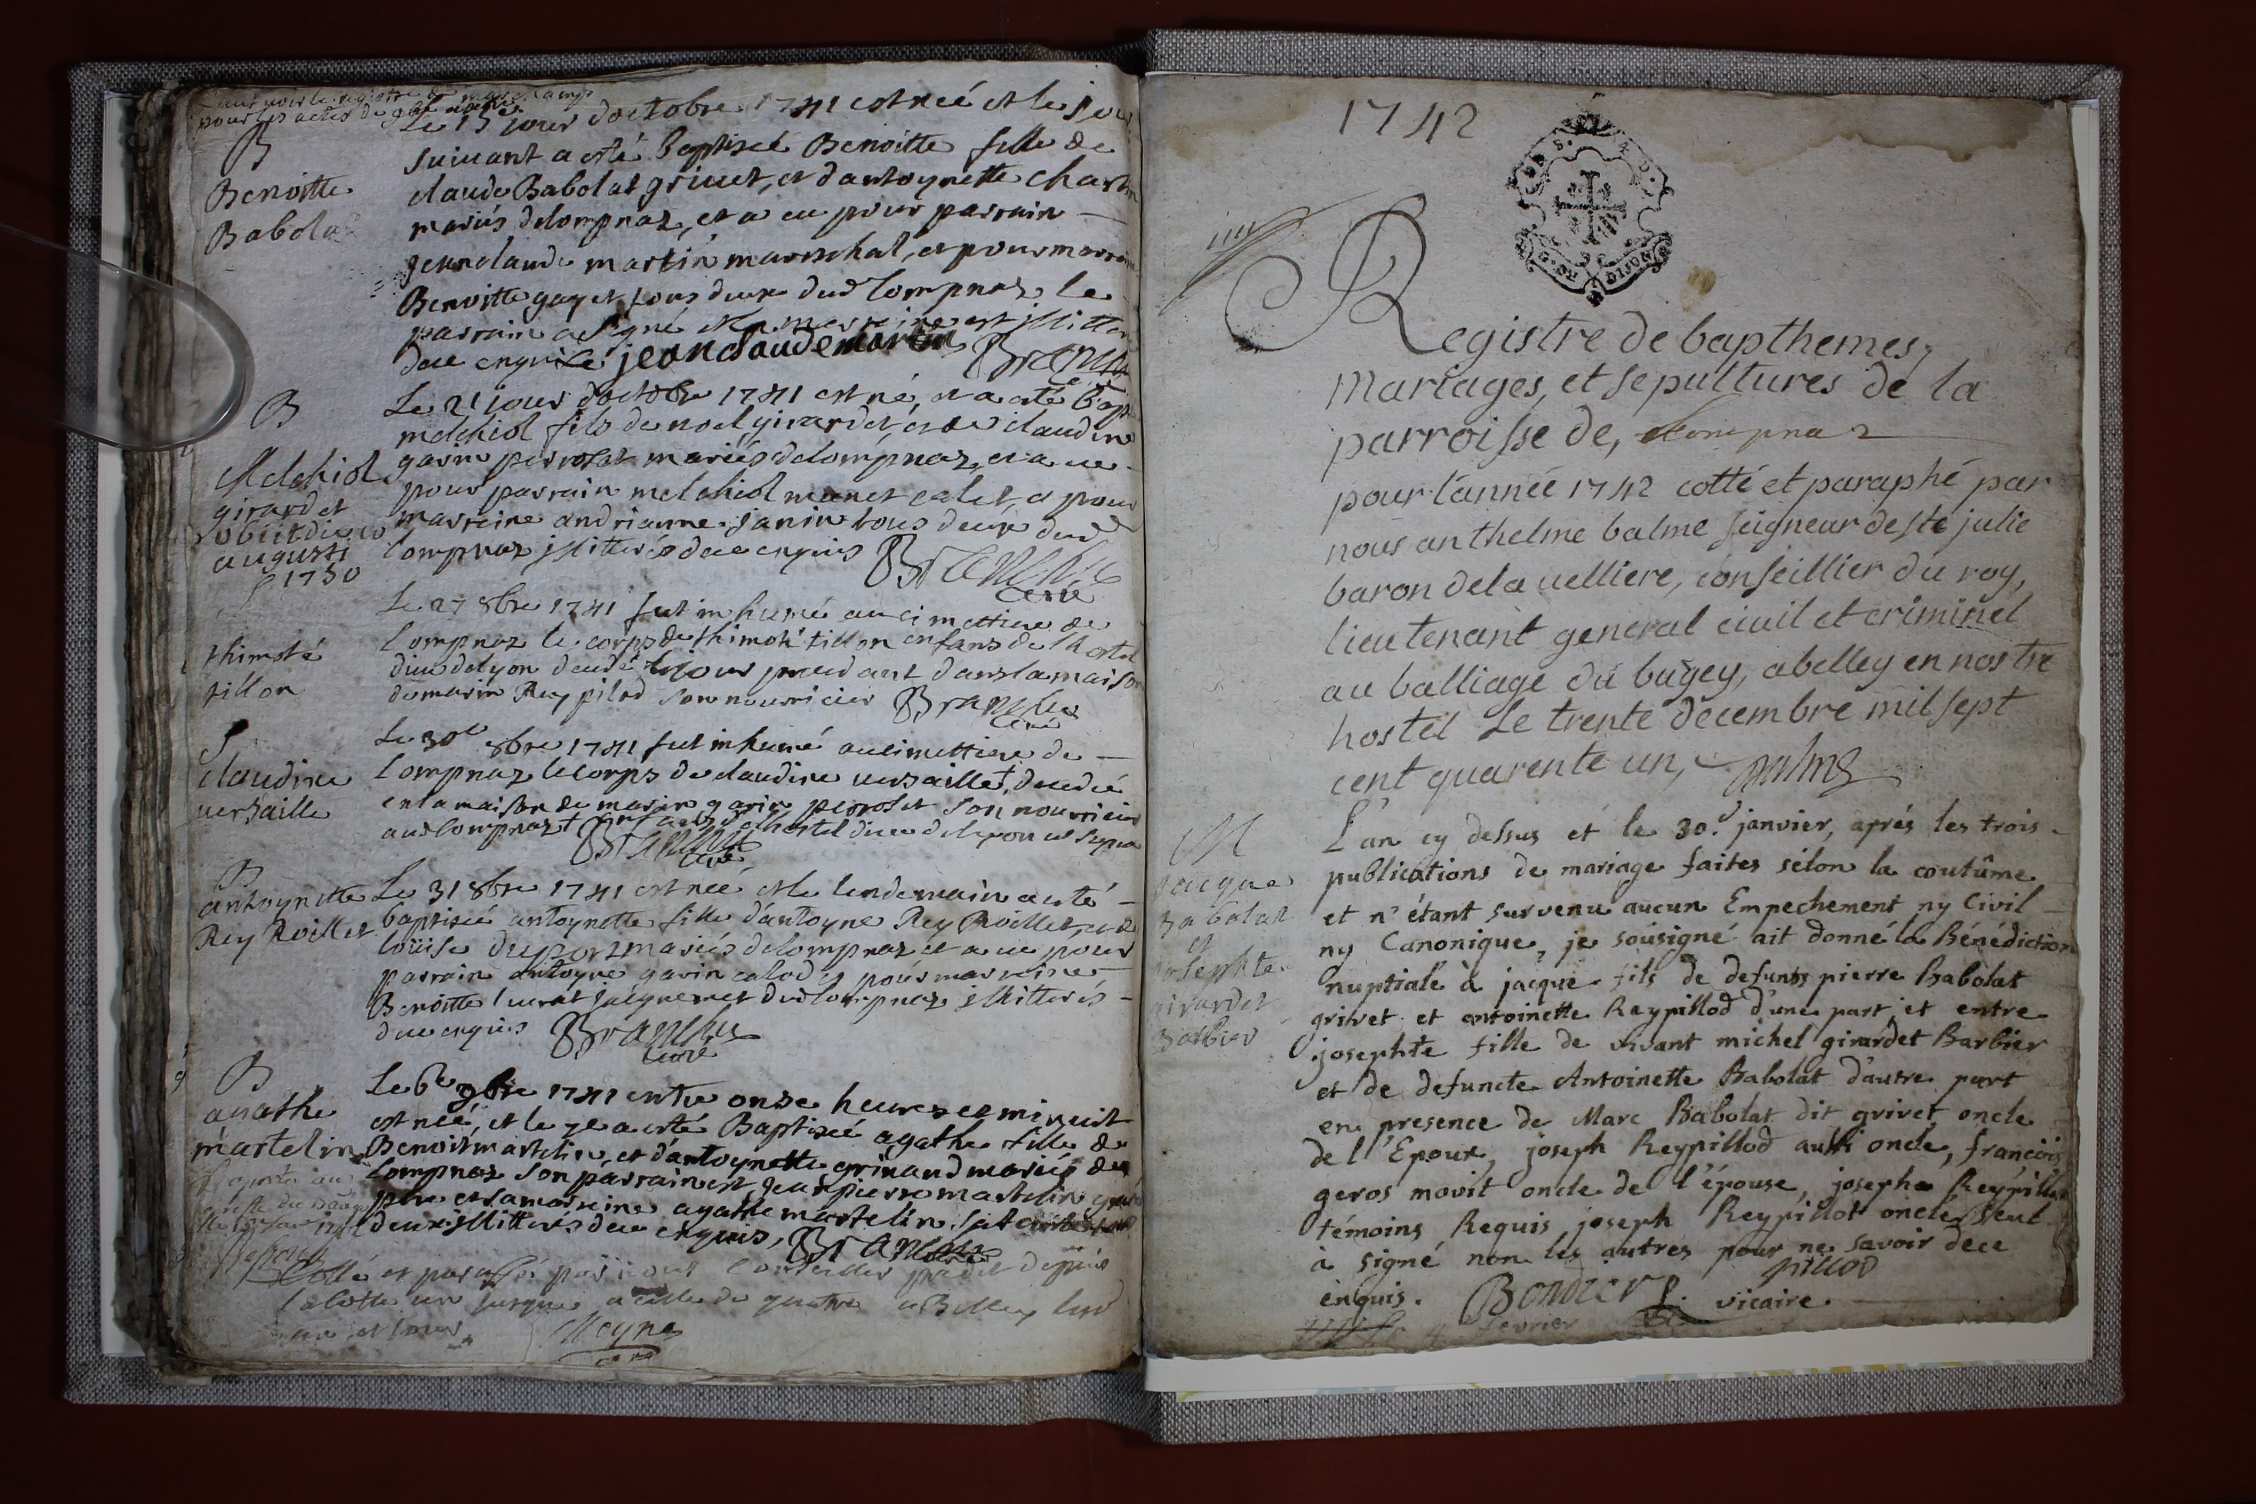 pour les actes de
Le 15e jour doctobre 1741 est neé et le jour
B
Benoitte
Babolat
suivant a esté Baptiseé Benoitte fille de
claude Babolat grivet, et dantoynette
mariés delompnaz, et a eu pour parrain
jeanclaude martin mareschal, et pour marraine
Benoitte gayet tous deux dud lompnaz le
parrain a signé et la marraine est illitteré
dece enquise jeanclaudemartin Branche
B
Melchiol
girardet
obiit die 10
augusti
1750
Le 21 jour doctobre 1741 est né, et a esté bapt
melchiol fils de noel girardet, et de claudine
garin perroset mariés delompnaz, et a eu
pour parrain melchiol calet, et pour
marreine andrianne janin tous deux dud
lompnaz illitterés dece enquis Branche
Curé
thimoté
tillon
Le 27 8bre 1741 fut inhumé au cimettiere de
lompnaz le corps de thimoté tillon enfans de lhostel
dieu delyon decedé le jour precedant dans la maison
de marin Rey pillod son nourricier Branche
Curé
S
claudine
versaille
Le 30e 8bre 1741 fut inhumé au cimettiere de
lompnaz le corps de claudine versaille decedé
en la maison de marin garin perroset son nourricier
aud lompnaz enfans de lhostel dieu delyon
Branche
Curé
B
antoynette
Rey Roillet
Le 31 8bre 1741 est neé et le lendemain a esté
baptiseé antoynette fille d'antoyne Rey Roillet, et de
loüise duport mariés delompnaz et a eu pour
parrain antoyne garin calod et pour marreine
Benoitte jacquemet dud lompnaz illitterés
dece enquis Branche
Curé
B
agathe
martelin
Le 6e 9bre 1741 entre onze heures et minuit
est neé, et le 7e a esté Baptiseé agathe fille de
Benoit martelin, et d'antoynette grinand mariés de
lompnaz son parrain est jean pierre martelin
pere et sa marreine agathe martelin
deux illitterés dece enquis, Branche
Cotté et paraffé par nous conseiller
la cotte un jusque a celle de quatre a Belley
Curé
1742
DIJON
Registre de bapthemes,
mariages, et sepultures de la
parroisse de, Lompnaz
pour l'année 1742 cotté et paraphé par
nous anthelme balme seigneur de ste julie
baron dela velliere, conseillier du roy,
lieutenant general civil et criminel
au balliage du bugey, abelley en nostre
hostel Le trente decembre mil sept
cent quarente un, balme
M
jacque
Babolat
et
josephte
girardet
Barbier
L'an cy dessus et le 30.e janvier, aprés les trois
publications de mariage faites sélon la coutûme
et n'étant survenu aucun Empechement ny Civil
ny Canonique, je soüsigné ait donné la Bénédiction
nuptiale à jacque fils de defunts pierre Babolat
grivet et antoinette Reypillod d'une part, et entre
josephte fille de vivant michel girardet Barbier
et de defuncte Antoinette Babolat d'autre part
en presence de Marc Babolat dit grivet oncle
de l'Epoux, joseph Reypillod aussi oncle, françois
geros movit oncle de l'épouse, joseph Reypillod
témoins Requis joseph Reypillot oncle seul
à signé non les autres pour ne savoir dece
énquis. Bondier p. vicaire. pillod
fevrier